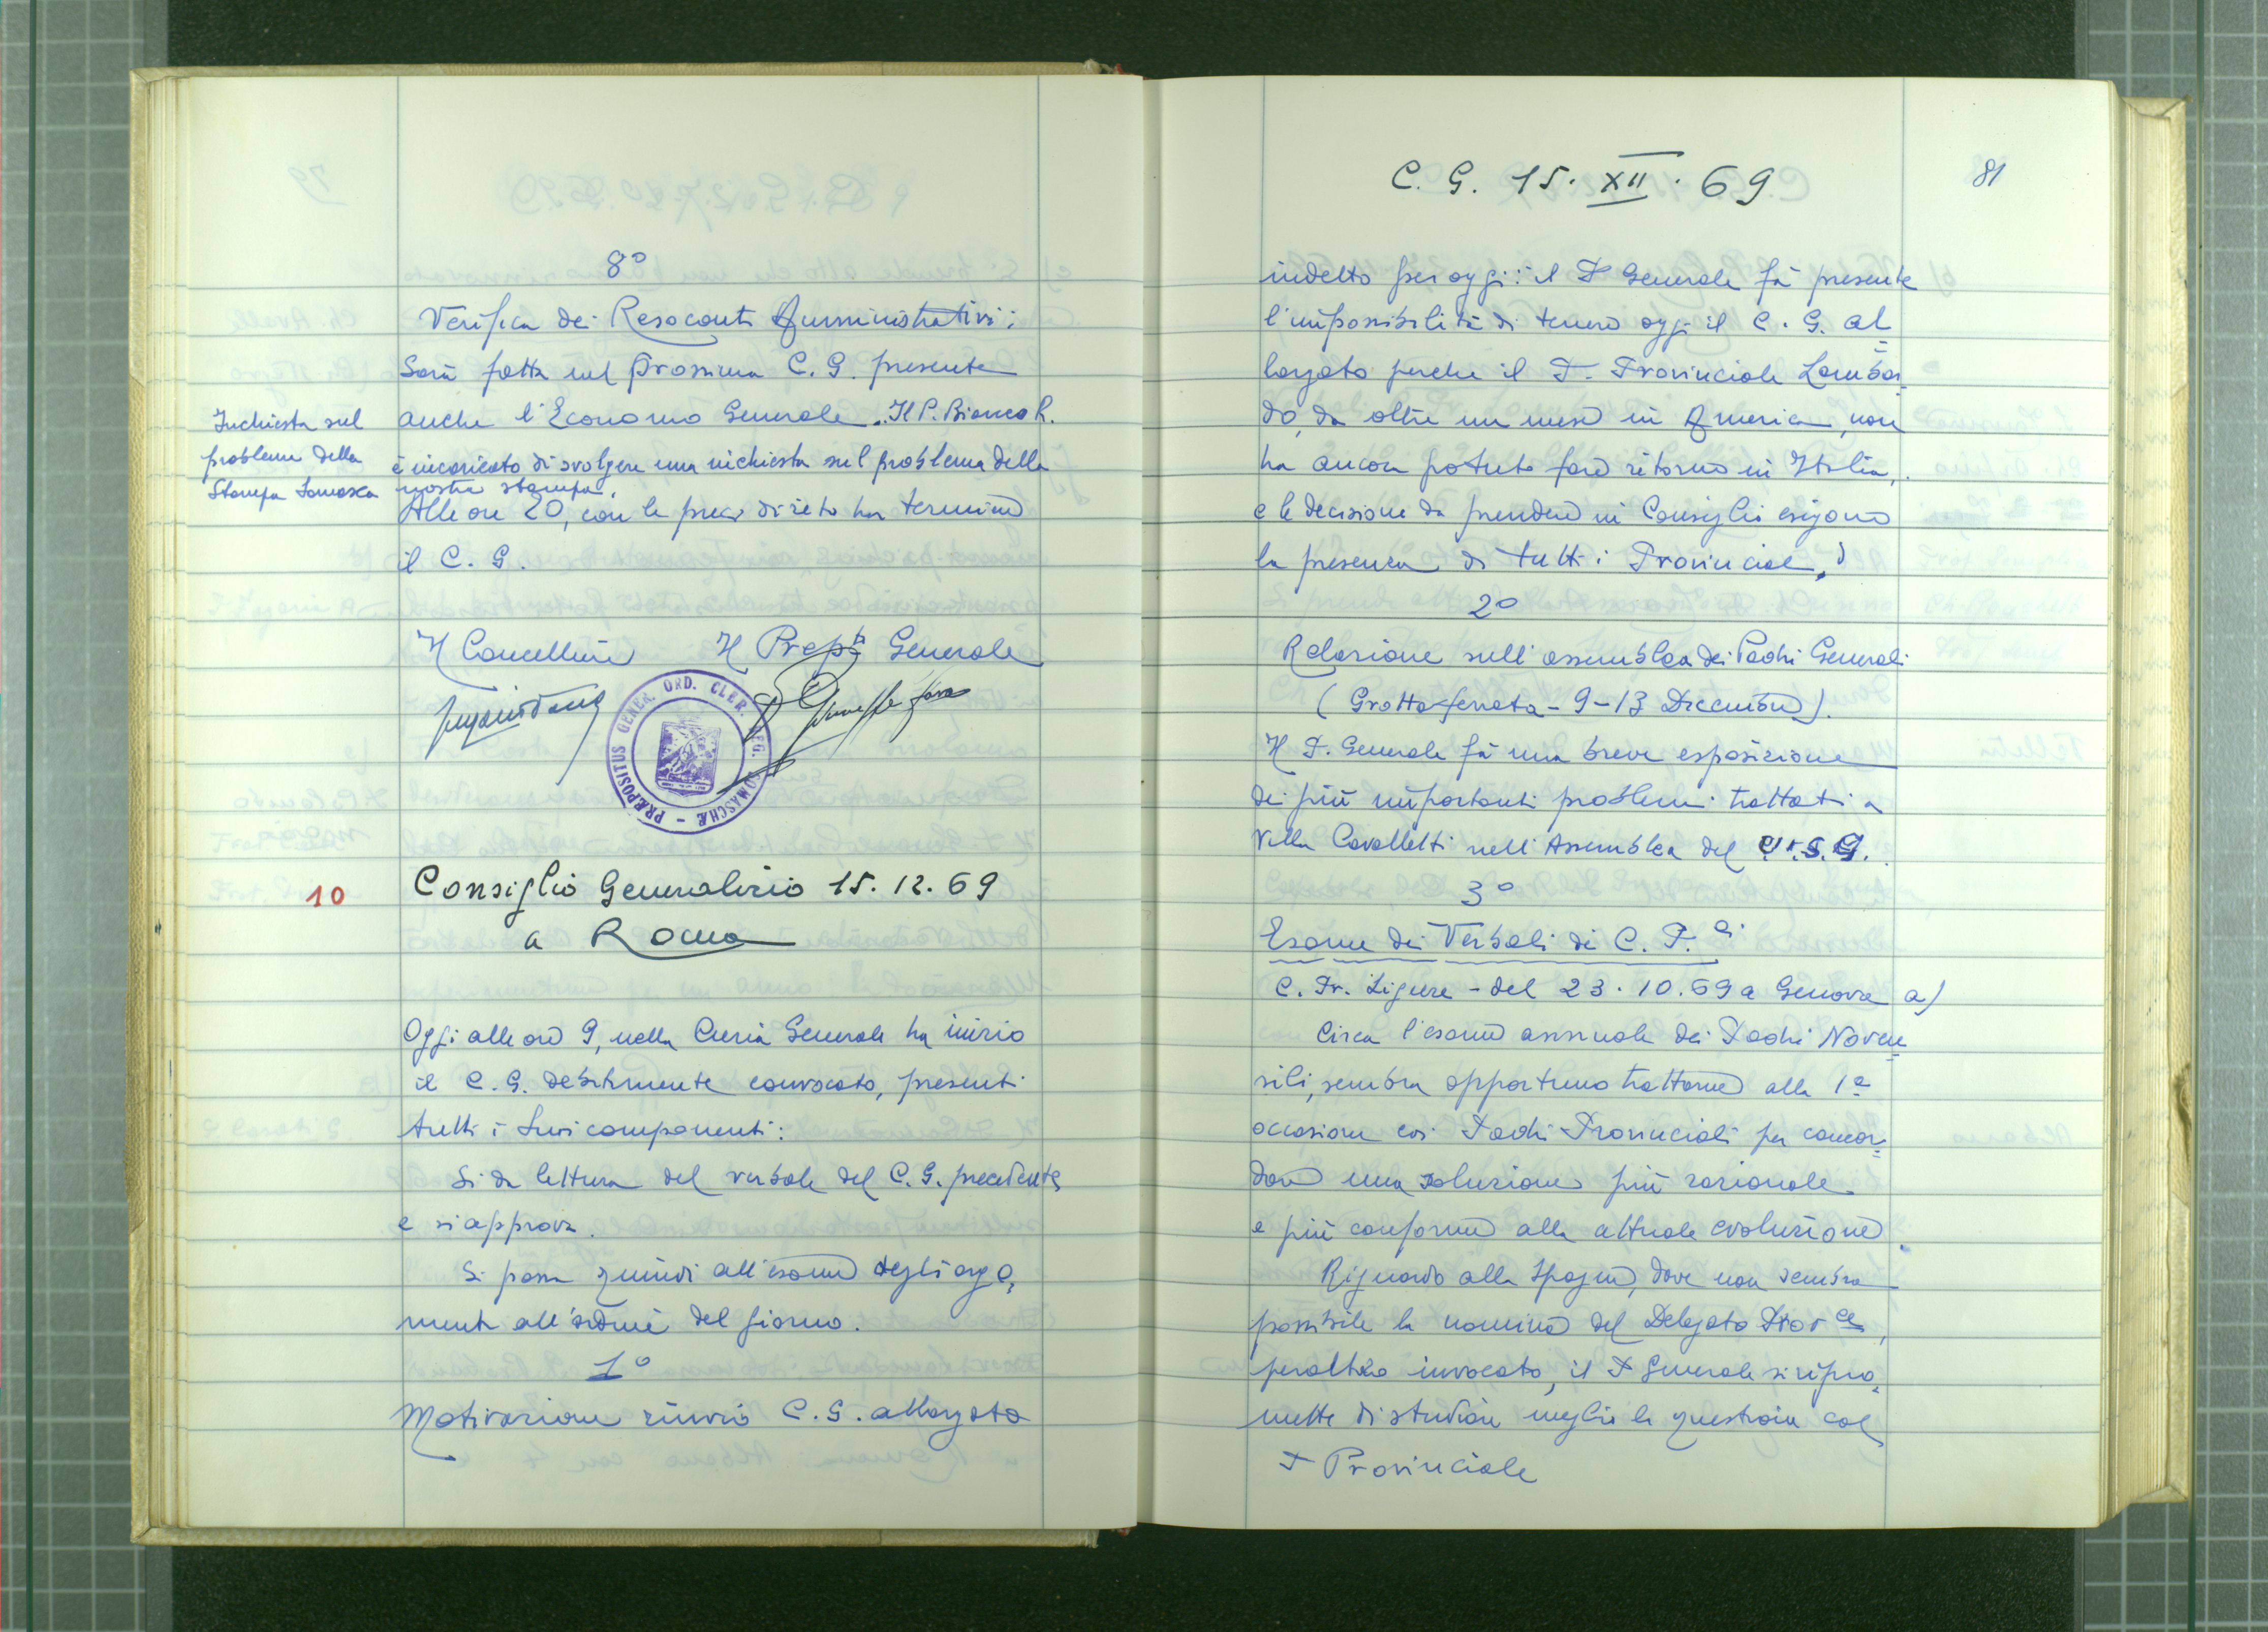 8°
Verifica dei Resoconti Amministrativi:
Sarà fatta nel prossimo C. G. presente
anche l'Economo Generale. Il P. Bianco R.
Inchiesta sul
problema della
Stampa Somasca
è incaricato di svolgere una inchiesta sul problema della
nostra stampa.
Alle ore 20, con le preci di rito ha termine
il C. G.
Il Cancelliere Il Prep.to Generale
PRÆPOSITUS GENER. ORD. CLER. REG. SOMASCHÆ
10
Consiglio Generalizio 15.12.69
a Roma
Oggi alle ore 9, nella Curia Generale ha inizio
il C. G. debitamente convocato, presenti
tutti i suoi componenti:
Si da lettura del verbale del C. G. precedente,
e si approva.
Si passa quindi all'esame degli argo=
menti all'ordine del giorno.
1°
Motivazione rinvio C. G. allargato
C. G. 15. XII. 69
81
indetto per oggi: il P Generale fà presente
l'impossibilità di tenere oggi il C. G. al=
largato perchè il P. Provinciale Lombar=
do, da oltre un mese in America, non
ha ancora potuto fare ritorno in Italia,
e le decisione da prendere in Consiglio esigono
la presenza di tutti i Provinciali.
2°
Relazione sull'assemblea dei Padri Generali
(Grottaferrata - 9-13 Dicembre).
Il P. Generale fà una breve esposizione
dei più importanti problemi trattati a
Villa Cavalletti nell'Assemblea del U.S.G.
3°
Esame dei Verbali di C. P.ali
C. Pr. Ligure - del 23.10.69 a Genova a)
Circa l'esame annuale dei Padri Noven=
sili, sembra opportuno trattarne alla 1ª
occasione coi Padri Provinciali per concor=
dare una soluzione più razionale
e più conforme alla attuale evoluzione.
Riguardo alla Spagna, dove non sembra
possibile la nomina del Delegato Prov.ce,
peraltro invocato, il P Generale si ripro=
mette di studiare meglio la questione col
P Provinciale